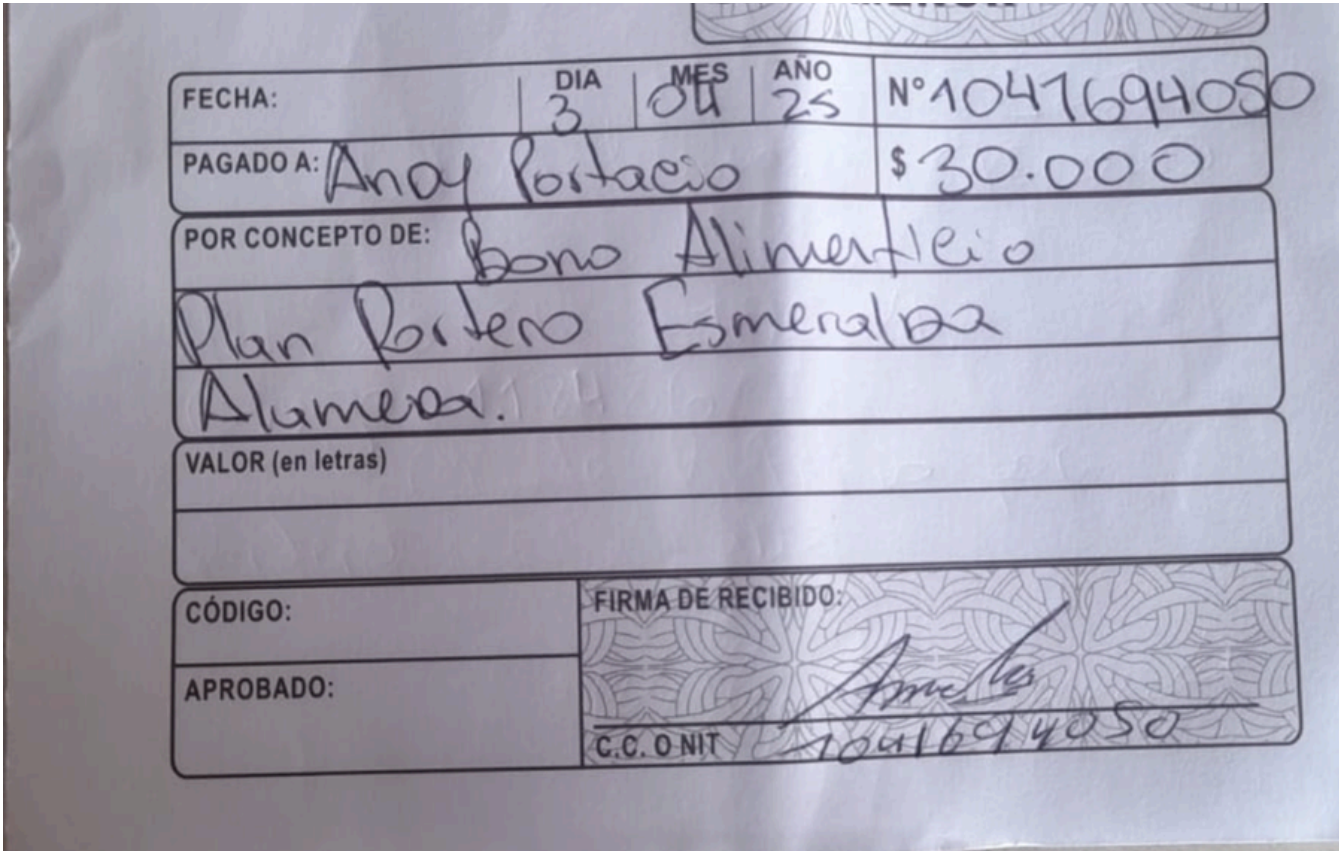 FECHA: DIA 3 MES 04 AÑO 25 N° 1041694050
PAGADO A: Andy Portacio $ 30.000
POR CONCEPTO DE: Bono Alimenticio
Plan Portero Esmeralda
Alameda.
VALOR (en letras)
CÓDIGO:
FIRMA DE RECIBIDO:
APROBADO:
C.C. O NIT 1041694050